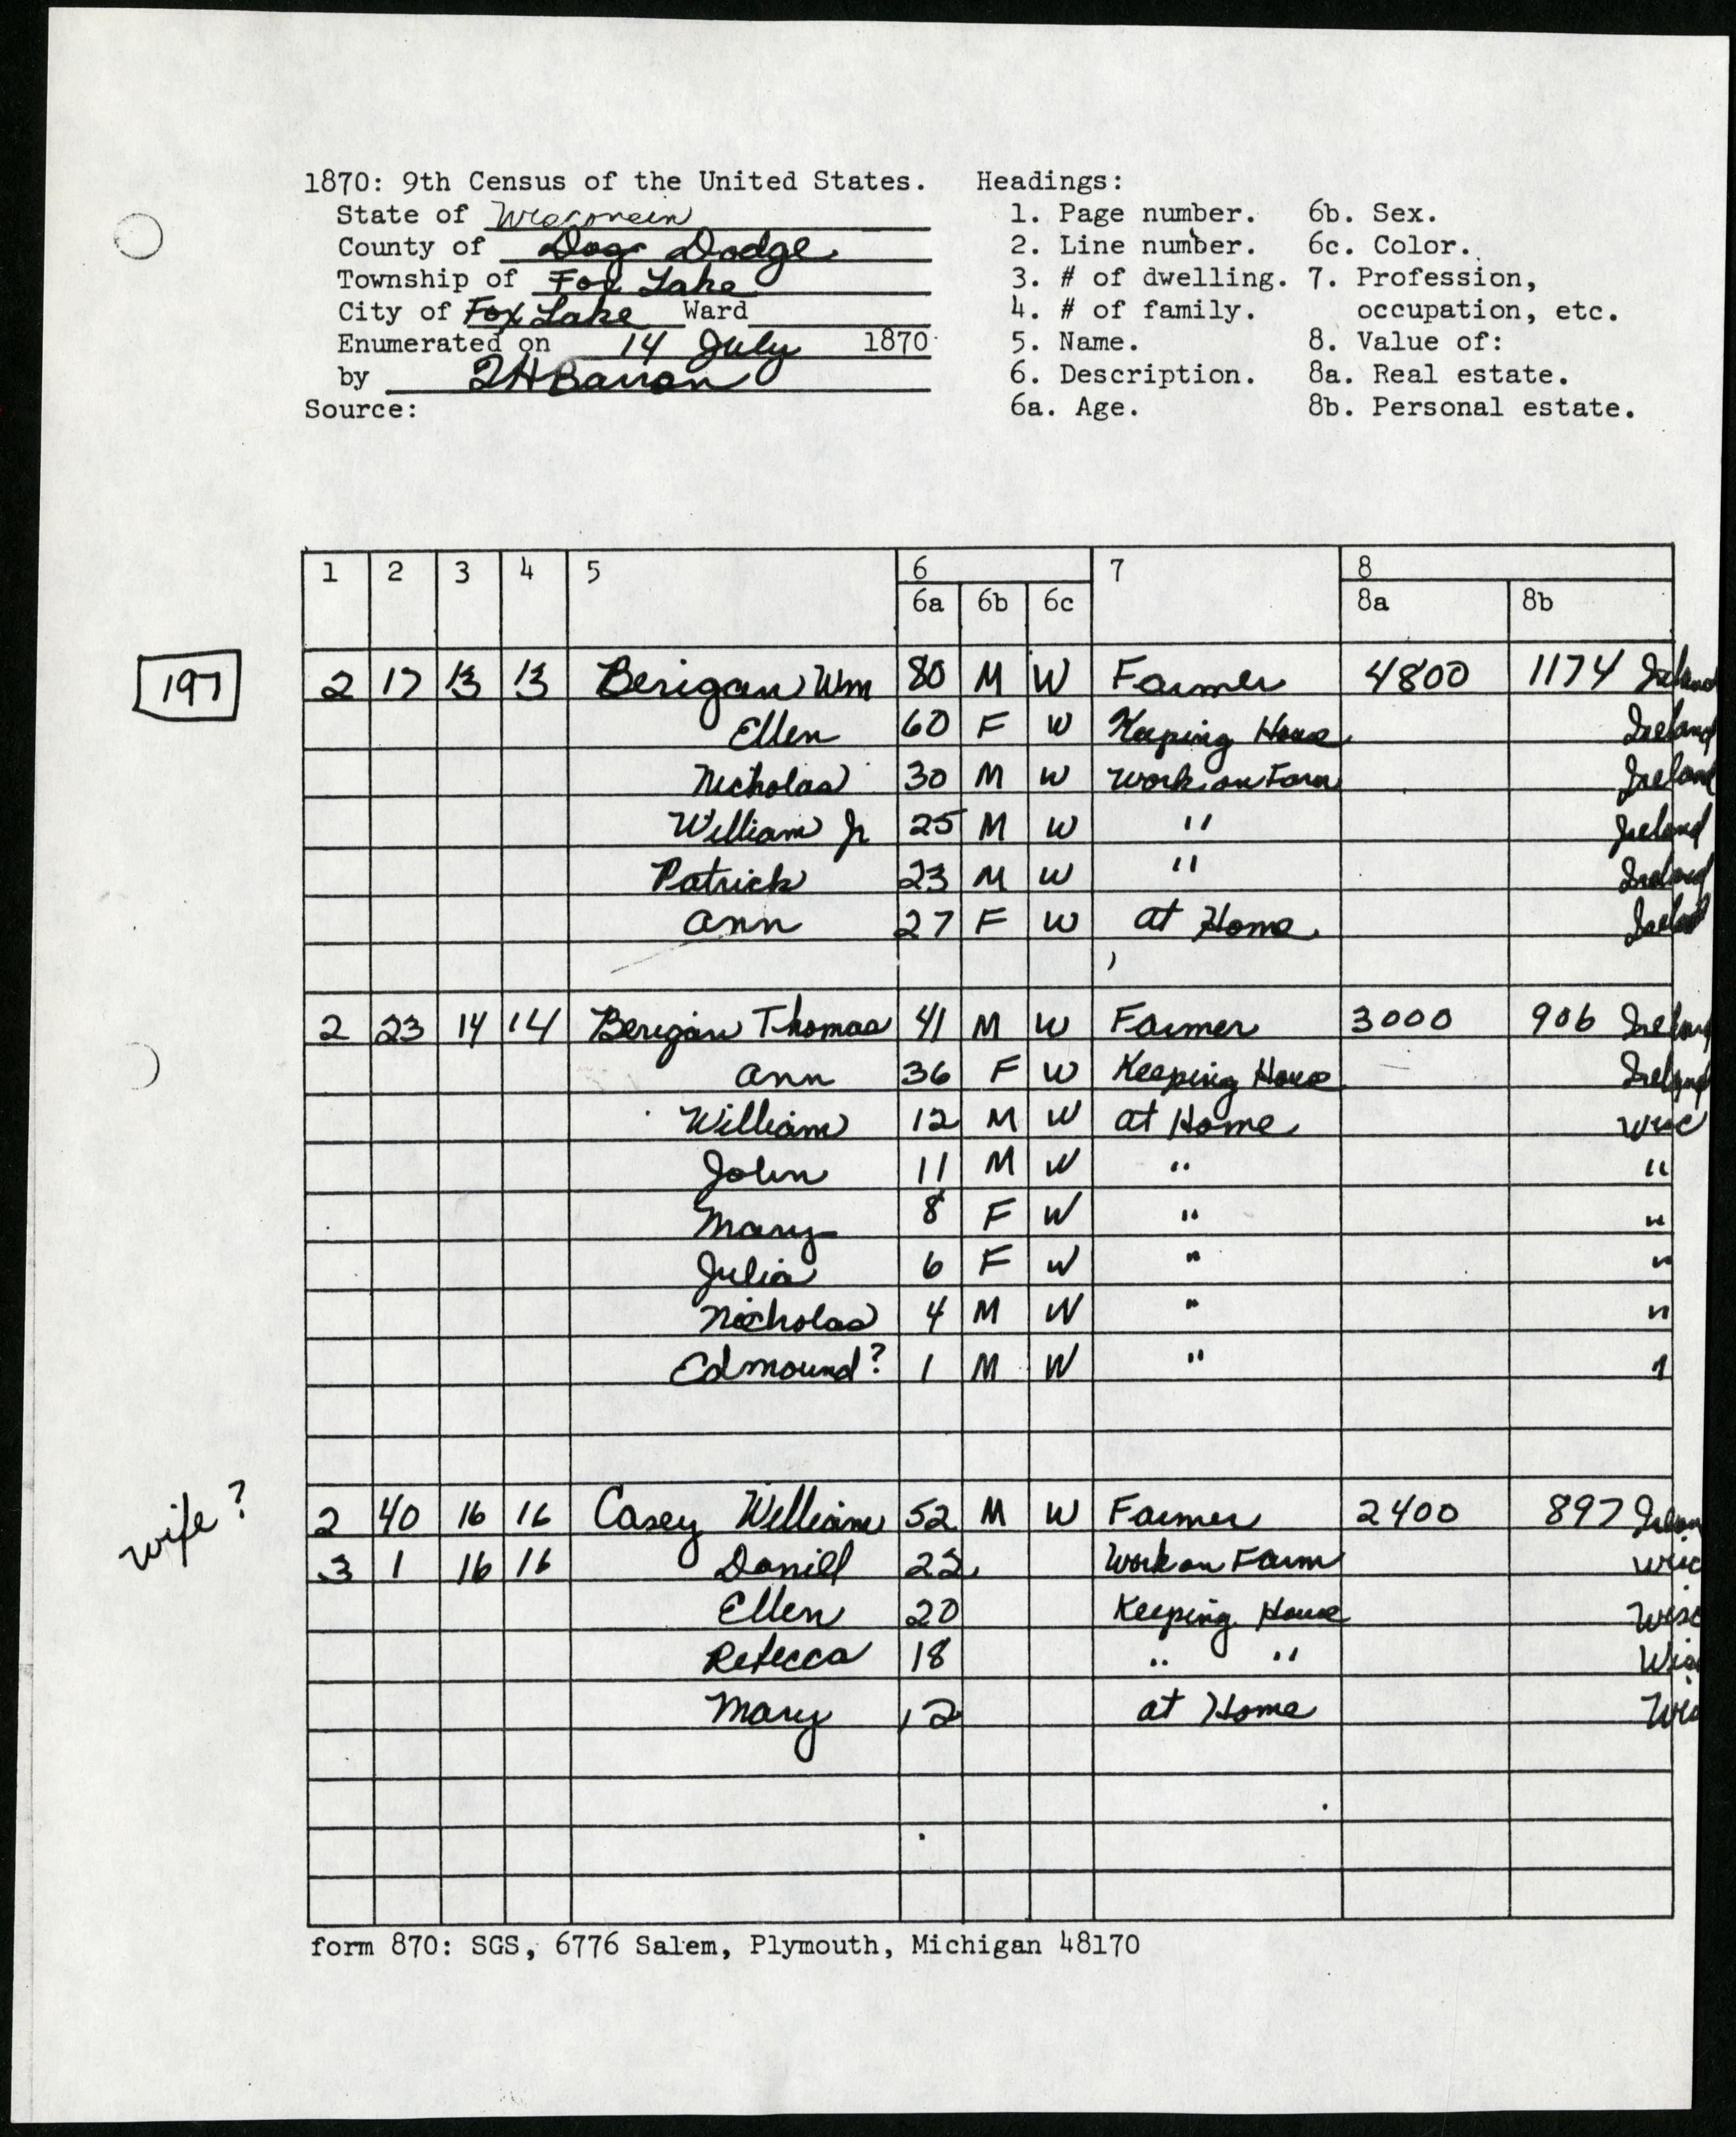 1870: 9th Census of the United States. Headings:
State of Wisconsin 1. Page number. 6b. Sex.
County of Dog Dodge 2. Line number. 6c. Color.
Township of Fox Lake 3. # of dwelling. 7. Profession,
City of Fox Lake Ward 4. # of family. occupation, etc.
Enumerated on 14 July 1870 5. Name. 8. Value of:
by 6. Description. 8a. Real estate.
Source: 6a. Age. 8b. Personal estate.
1 2 3 4 5 6 7 8
6a 6b 6c 8a 8b
197 2 17 13 13 Berigan Wm 80 M W Farmer 4800 1174 Ireland
Ellen 60 F W Keeping House Ireland
Nicholas 30 M W Work on Farm Ireland
William Jr 25 M W " Ireland
Patrick 23 M W " Ireland
Ann 27 F W at Home Ireland
2 23 14 14 Berigan Thomas 41 M W Farmer 3000 906 Ireland
Ann 36 F W Keeping House Ireland
William 12 M W at Home Wisc
John 11 M W " "
Mary 8 F W " "
Julia 6 F W " "
Nicholas 4 M W " "
Edmound? 1 M W " "
wife? 2 40 16 16 Casey William 52 M W Farmer 2400 897
3 1 16 16 Daniel 22 Work on Farm Wisc
Ellen 20 Keeping House Wisc
Rebecca 18 " " Wis
Mary 12 at Home Wis
form 870: SGS, 6776 Salem, Plymouth, Michigan 48170